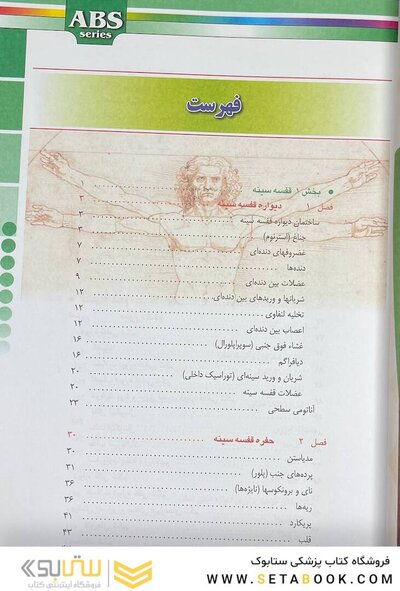 ABS
series
فهرست
بخش ۱ قفسه سینه
فصل ۱ دیواره قفسه سینه ۳
ساختمان دیواره قفسه سینه ۳
جناغ (استرنوم) ۳
غضروفهای دنده‌ای ۷
دنده‌ها ۷
عضلات بین دنده‌ای ۹
شریانها و وریدهای بین دنده‌ای ۱۲
تخلیه لنفاوی ۱۲
اعصاب بین دنده‌ای ۱۲
غشاء فوق جنبی (سوپراپلورال) ۱۶
دیافراگم ۱۶
شریان و ورید سینه‌ای (توراسیک داخلی) ۲۰
عضلات قفسه سینه ۲۰
آناتومی سطحی ۲۳
فصل ۲ حفره قفسه سینه ۳۰
مدیاستن ۳۰
پرده‌های جنب (پلور) ۳۱
نای و برونکوسها (نایژه‌ها) ۳۶
ریه‌ها ۳۶
پریکارد ۴۱
قلب ۴۳
فروشگاه کتاب پزشکی ستابوک
WWW.SETABOOK.COM
ستابوک
فروشگاه اینترنتی کتاب